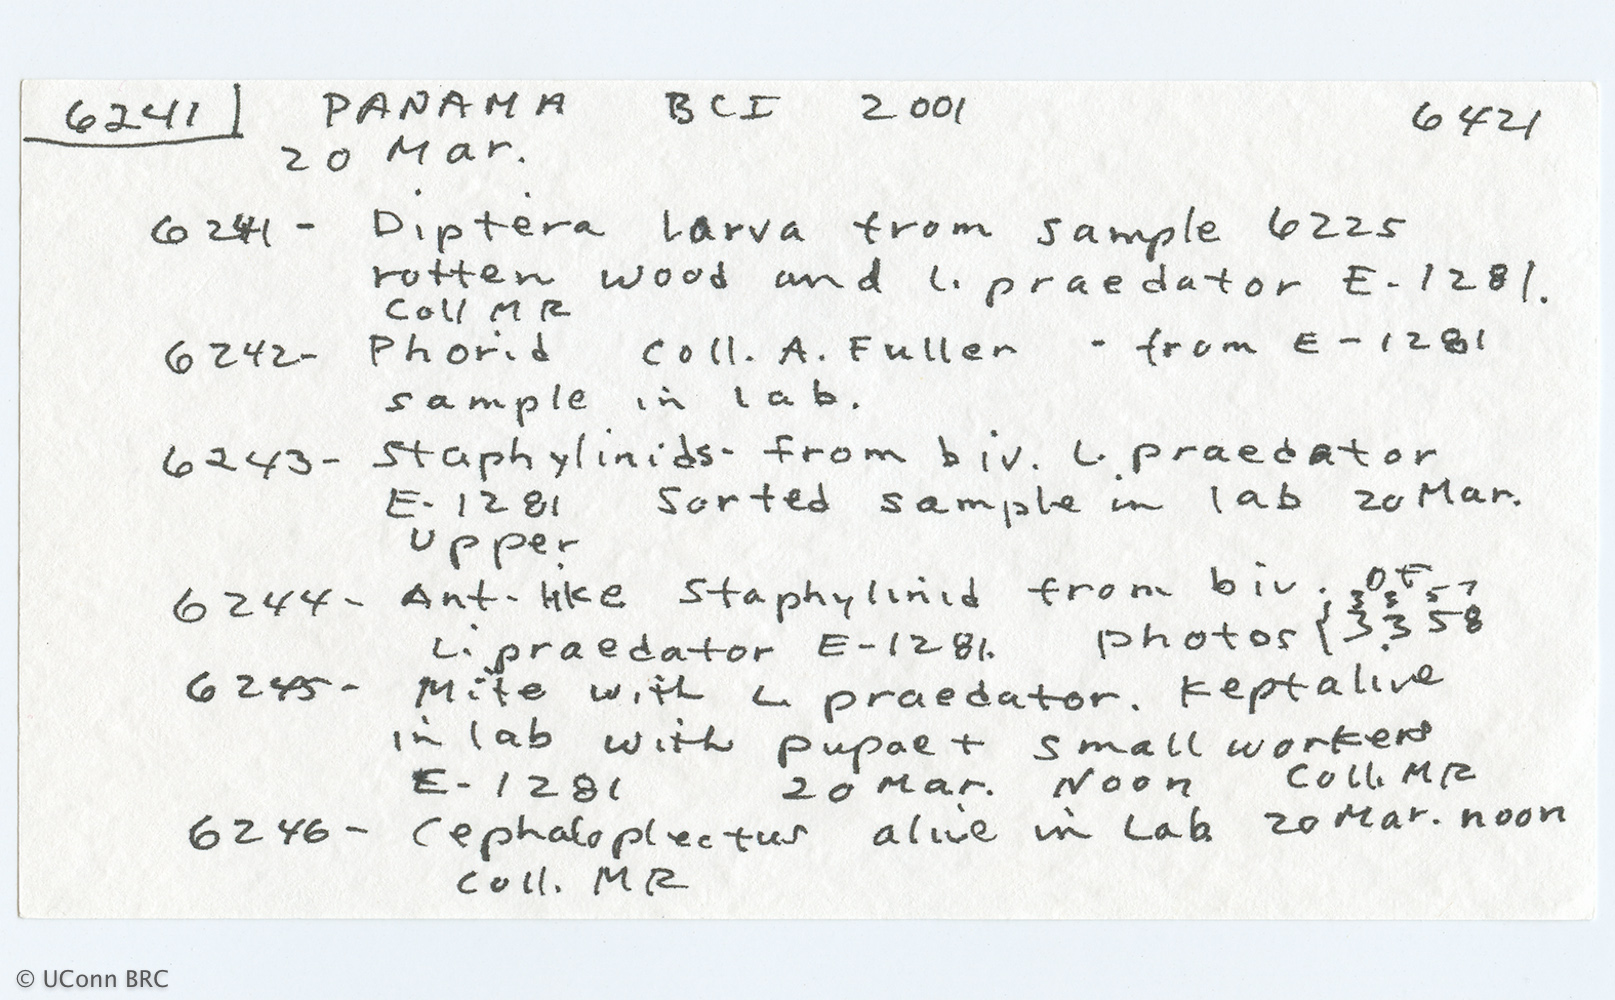 6241 PANAMA BCI 2001 6421
20 Mar.
6241- Diptera larva from sample 6225
rotten wood and L. praedator E-1281.
Coll MR
6242- Phorid Coll. A. Fuller - from E-1281
sample in lab.
6243- Staphylinids- from biv. L. praedator
E-1281 Sorted sample in lab 20 Mar.
Upper
6244- Ant-like Staphylinid from biv.
L. praedator E-1281. photos {
6245- Mite with L. praedator. Kept alive
in lab with pupae + small workers
E-1281 20 Mar. Noon Coll. MR
6246- Cephaloplectus alive in Lab 20 Mar. noon
Coll. MR
© UConn BRC